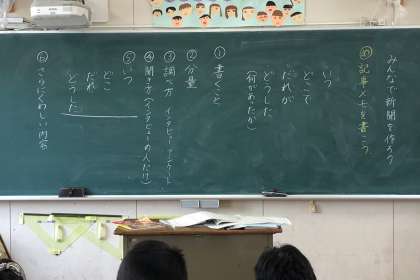 みんなで新聞を作ろう
め 記事メモを書こう
いつ
どこで
だれが
どうした
(何があったか)
① 書くこと
② 分量
③ 調べ方 インタビュー アンケート
④ 聞き方(インタビューの人だけ)
⑤ いつ
どこ
だれ
どうした
⑥ さらにくわしい内容